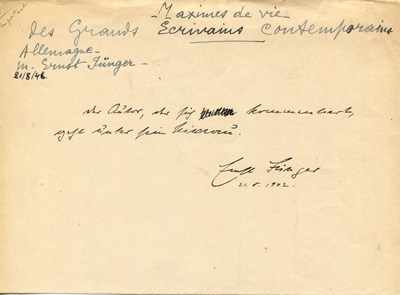 Maximes de vie
des Grands Écrivains Contemporains
Allemagne -
M. Ernst Jünger -
21/8/42
Der Autor, der sich kommentiert,
geht unter sein Niveau.
Ernst Jünger
21. 8. 1942.